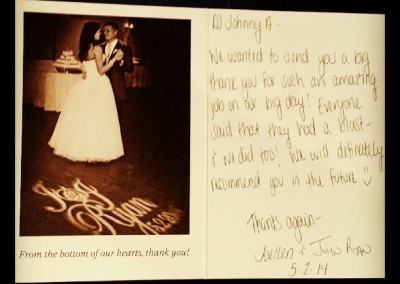 DJ Johnny A -
We wanted to send you a big
thank you for such an amazing
job on our big day! Everyone
said that they had a blast -
& we did too! We will definately
recommend you in the future
Thanks again -
& John Ryan
5-2-14
Ryan
From the bottom of our hearts, thank you!